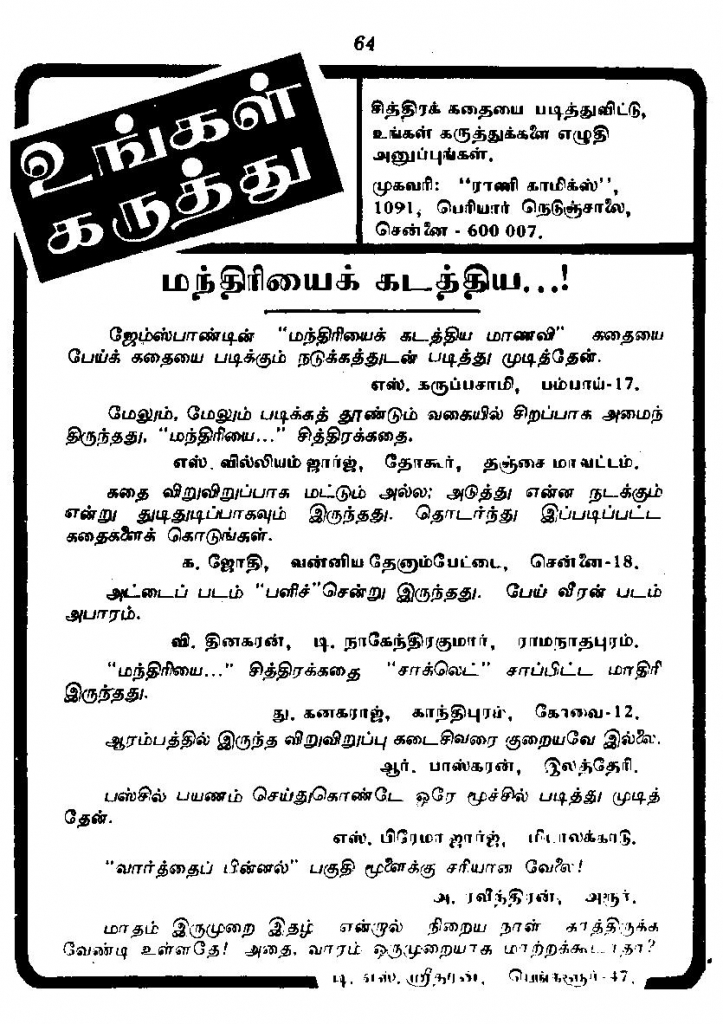 64
உங்கள்
கருத்து
சித்திரக் கதையை படித்துவிட்டு,
உங்கள் கருத்துக்களை எழுதி
அனுப்புங்கள்.
முகவரி: "ராணி காமிக்ஸ்",
1091, பெரியார் நெடுஞ்சாலை,
சென்னை - 600 007.
மந்திரியைக் கடத்திய...!
ஜேம்ஸ்பாண்டின் "மந்திரியைக் கடத்திய மாணவி" கதையை
பேய்க் கதையை படிக்கும் நடுக்கத்துடன் படித்து முடித்தேன்.
எஸ். கருப்பசாமி, பம்பாய்-17.
மேலும், மேலும் படிக்கத் தூண்டும் வகையில் சிறப்பாக அமைந்
திருந்தது. "மந்திரியை..." சித்திரக்கதை.
எஸ். வில்லியம் ஜார்ஜ், தோகூர், தஞ்சை மாவட்டம்.
கதை விறுவிறுப்பாக மட்டும் அல்ல; அடுத்து என்ன நடக்கும்
என்று துடிதுடிப்பாகவும் இருந்தது. தொடர்ந்து இப்படிப்பட்ட
கதைகளைக் கொடுங்கள்.
க. ஜோதி, வன்னிய தேனாம்பேட்டை, சென்னை-18.
அட்டைப் படம் "பளிச்"சென்று இருந்தது. பேய் வீரன் படம்
அபாரம்.
வி. தினகரன், டி. நாகேந்திரகுமார், ராமநாதபுரம்.
"மந்திரியை..." சித்திரக்கதை "சாக்லெட்" சாப்பிட்ட மாதிரி
இருந்தது.
து. கனகராஜ், காந்திபுரம், கோவை-12.
ஆரம்பத்தில் இருந்த விறுவிறுப்பு கடைசிவரை குறையவே இல்லை.
ஆர். பாஸ்கரன், இலத்தேரி.
பஸ்சில் பயணம் செய்துகொண்டே ஒரே மூச்சில் படித்து முடித்
தேன்.
எஸ். பிரேமா ஜார்ஜ், மீபாலக்காடு.
"வார்த்தைப் பின்னல்" பகுதி மூளைக்கு சரியான வேலை!
அ. ரவீந்திரன், அரூர்.
மாதம் இருமுறை இதழ் என்றால் நிறைய நாள் காத்திருக்க
வேண்டி உள்ளதே! அதை, வாரம் ஒருமுறையாக மாற்றக்கூடாதா?
டி. எஸ். ஸ்ரீதரன், பெங்களூர்-47.